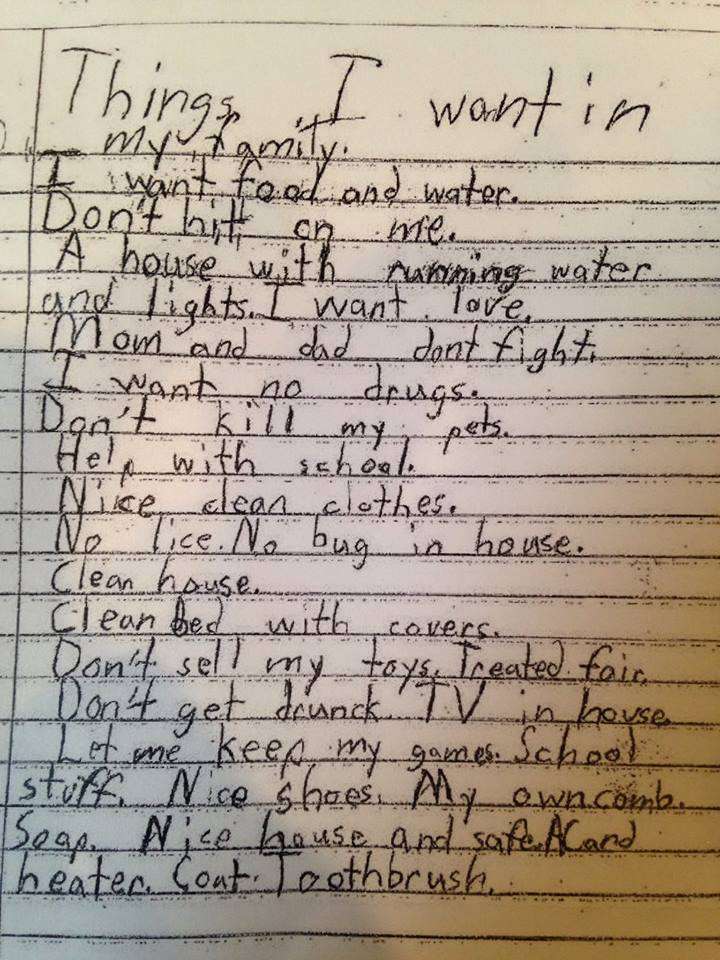 Things I want in
my family.
I want food and water.
Don't hitt on me.
A house with running water
and lights. I want love.
Mom and dad dont fight.
I want no drugs.
Don't kill my pets.
Help with school.
Nice clean clothes.
No lice. No bug in house.
Clean house.
Clean bed with covers.
Don't sell my toys. Treated fair.
Don't get drunck TV in house.
Let me keep my games. School
stuff. Nice shoes. My own comb.
Soap. Nice house and safe. AC and
heater. Coat. Toothbrush.